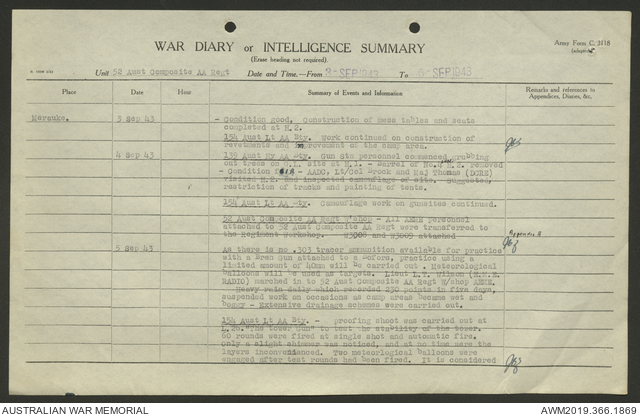 WAR DIARY or INTELLIGENCE SUMMARY
(Erase heading not required).
Army Form C. 2118
(adapted)
Unit 52 Aust Composite AA Regt Date and Time.—From 3-SEP1943 To 5-SEP1943
Place Date Hour Summary of Events and Information Remarks and references to
Appendices, Diaries, &c.
Merauke. 3 Sep 43 - Condition good. Construction of mess tables and seats
completed at H.2.
154 Aust Lt AA Bty. Work continued on construction of
revetments and improvement of the camp area.
4 Sep 43 139 Aust Hy AA Bty. Gun sta personnel commenced grubbing
out trees on site at H.1. - Barrel of No.4 H.2. removed
- Condition - AADC, Lt/Col Brock and Maj Thomas (DORE)
visited H.2. and inspected camouflage of site. Suggested,
restriction of tracks and painting of tents.
154 Aust Lt AA Bty. Camouflage work on gunsites continued.
52 Aust Composite AA Regt W'shop - All AEME personnel
attached to 52 Aust Composite AA Regt were transferred to
the Regiment Workshop. W3008 and W3009 attached
Appendix
5 Sep 43 As there is no .303 tracer ammunition available for practice
with a Bren Gun attached to a Bofors, practice using a
limited amount of 40mm will be carried out. Meteorological
balloons will be used as targets. Lieut L.
RADIO) marched in to 52 Aust Composite AA Regt W/shop AEME.
- Heavy rain daily which recorded 230 points in five days,
suspended work on occasions as camp areas became wet and
boggy - Extensive drainage schemes were carried out.
154 Aust Lt AA Bty. - proofing shoot was carried out at
"The Tower Gun" to test the stability of the tower.
60 rounds were fired at single shot and automatic fire.
Only a slight shimmer was noticed, and at no time were the
layers inconvenienced. Two meteorological balloons were
engaged after test rounds had been fired. It is considered
AUSTRALIAN WAR MEMORIAL
AWM2019.366.1869